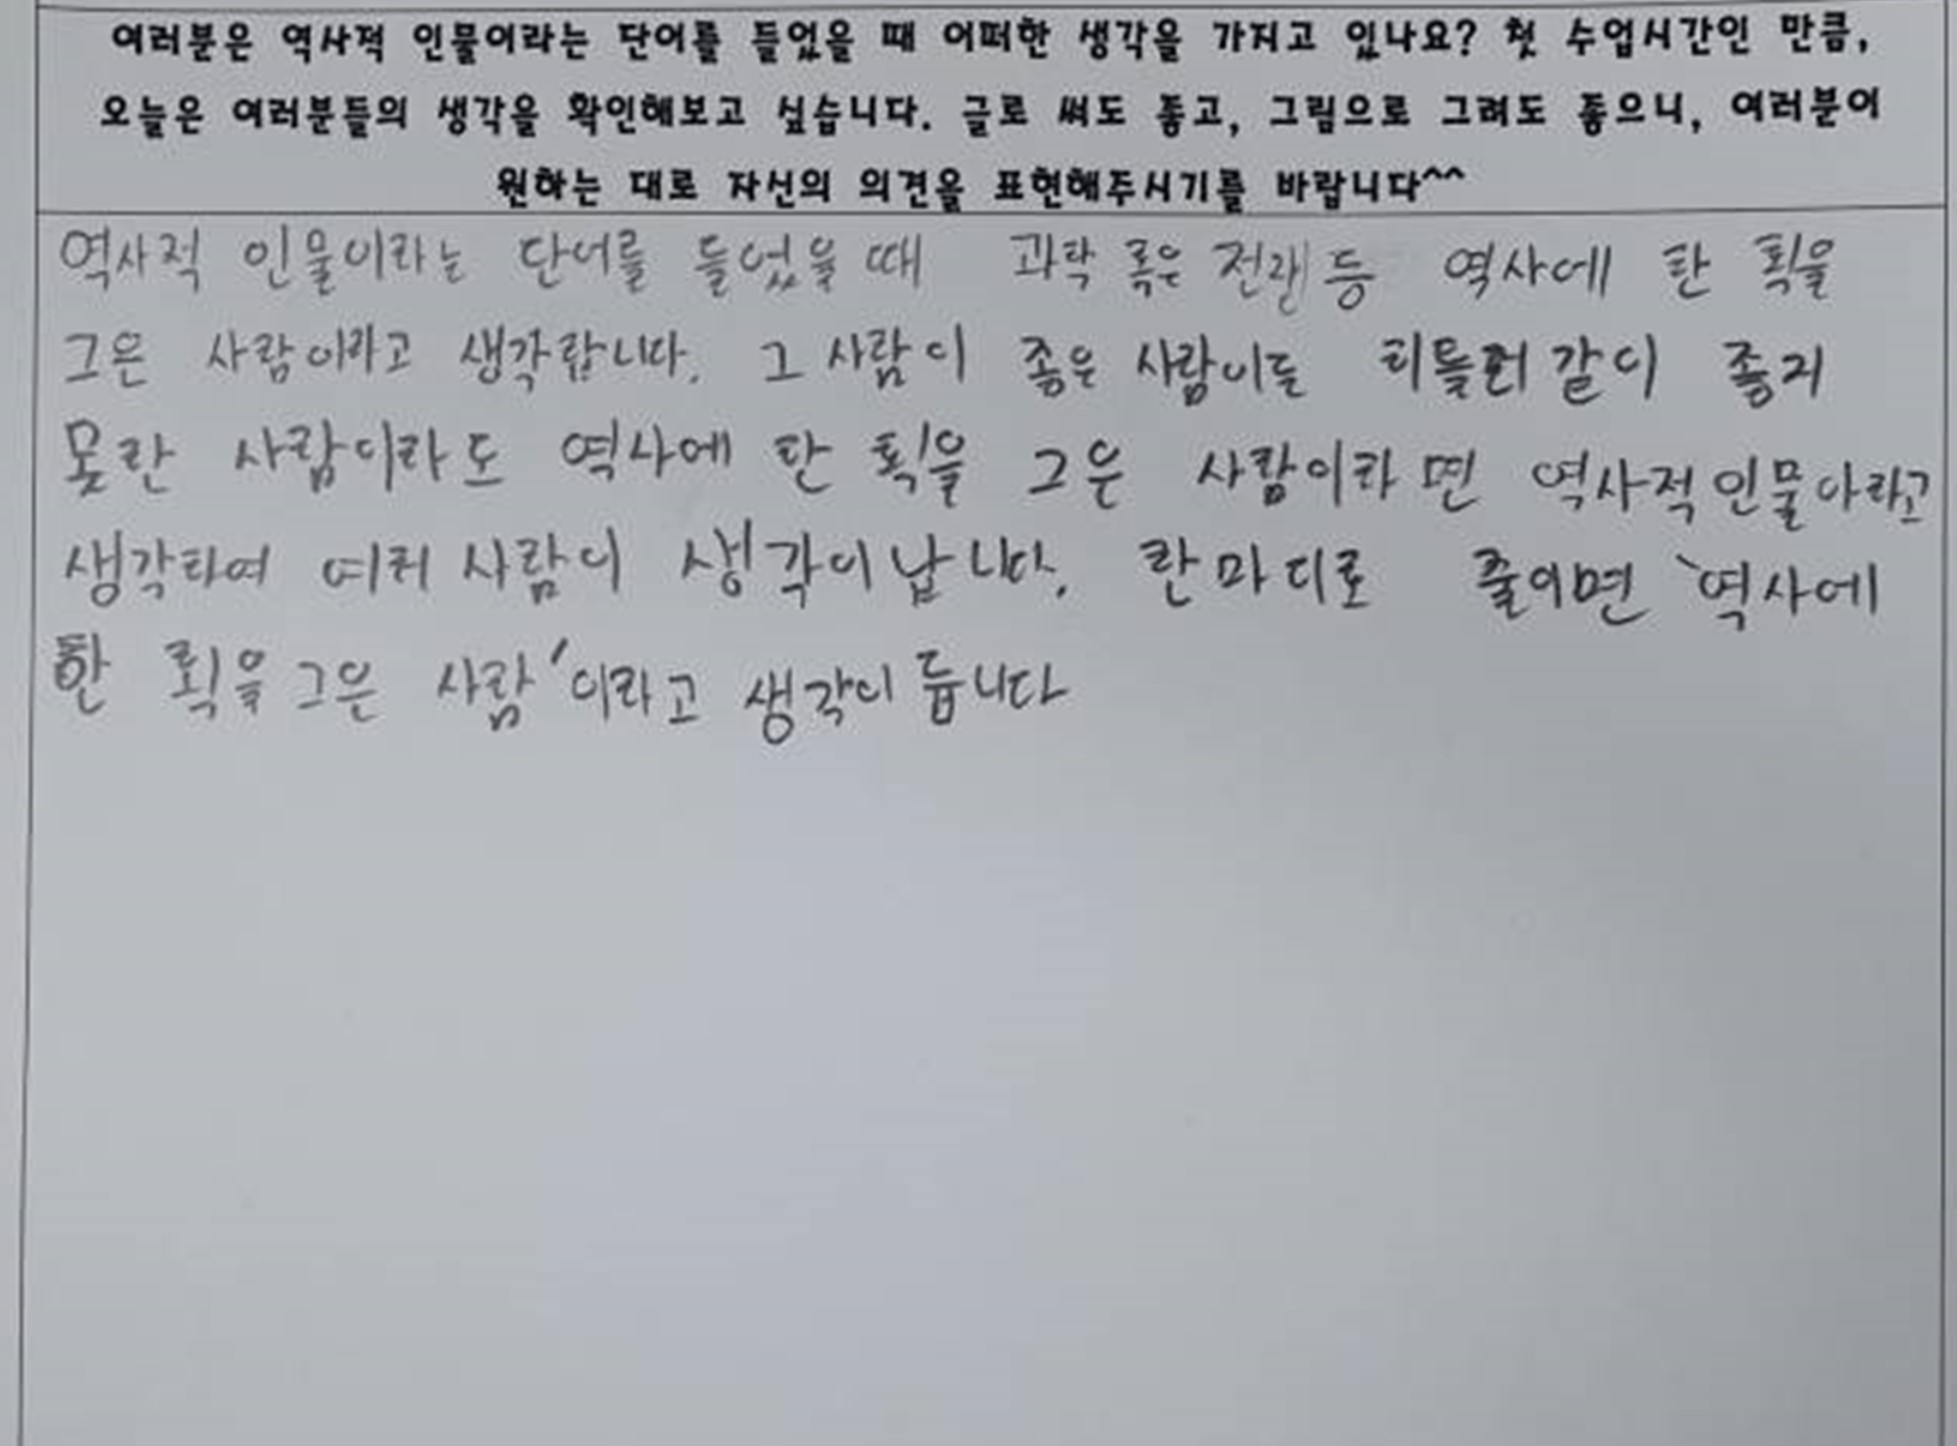 여러분은 역사적 인물이라는 단어를 들었을 때 어떠한 생각을 가지고 있나요? 첫 수업시간인 만큼,
오늘은 여러분들의 생각을 확인해보고 싶습니다. 글로 써도 좋고, 그림으로 그려도 좋으니, 여러분이
원하는 대로 자신의 의견을 표현해주시기를 바랍니다^^
역사적 인물이라는 단어를 들었을 때 과학 혹은 전쟁 등 역사에 한 획을
그은 사람이라고 생각합니다. 그 사람이 좋은 사람이든 히틀러 같이 좋지
못한 사람이라도 역사에 한 획을 그은 사람이라면 역사적 인물이라고
생각하여 여러 사람이 생각이 납니다. 한마디로 줄이면 '역사에
한 획을 그은 사람'이라고 생각이 듭니다